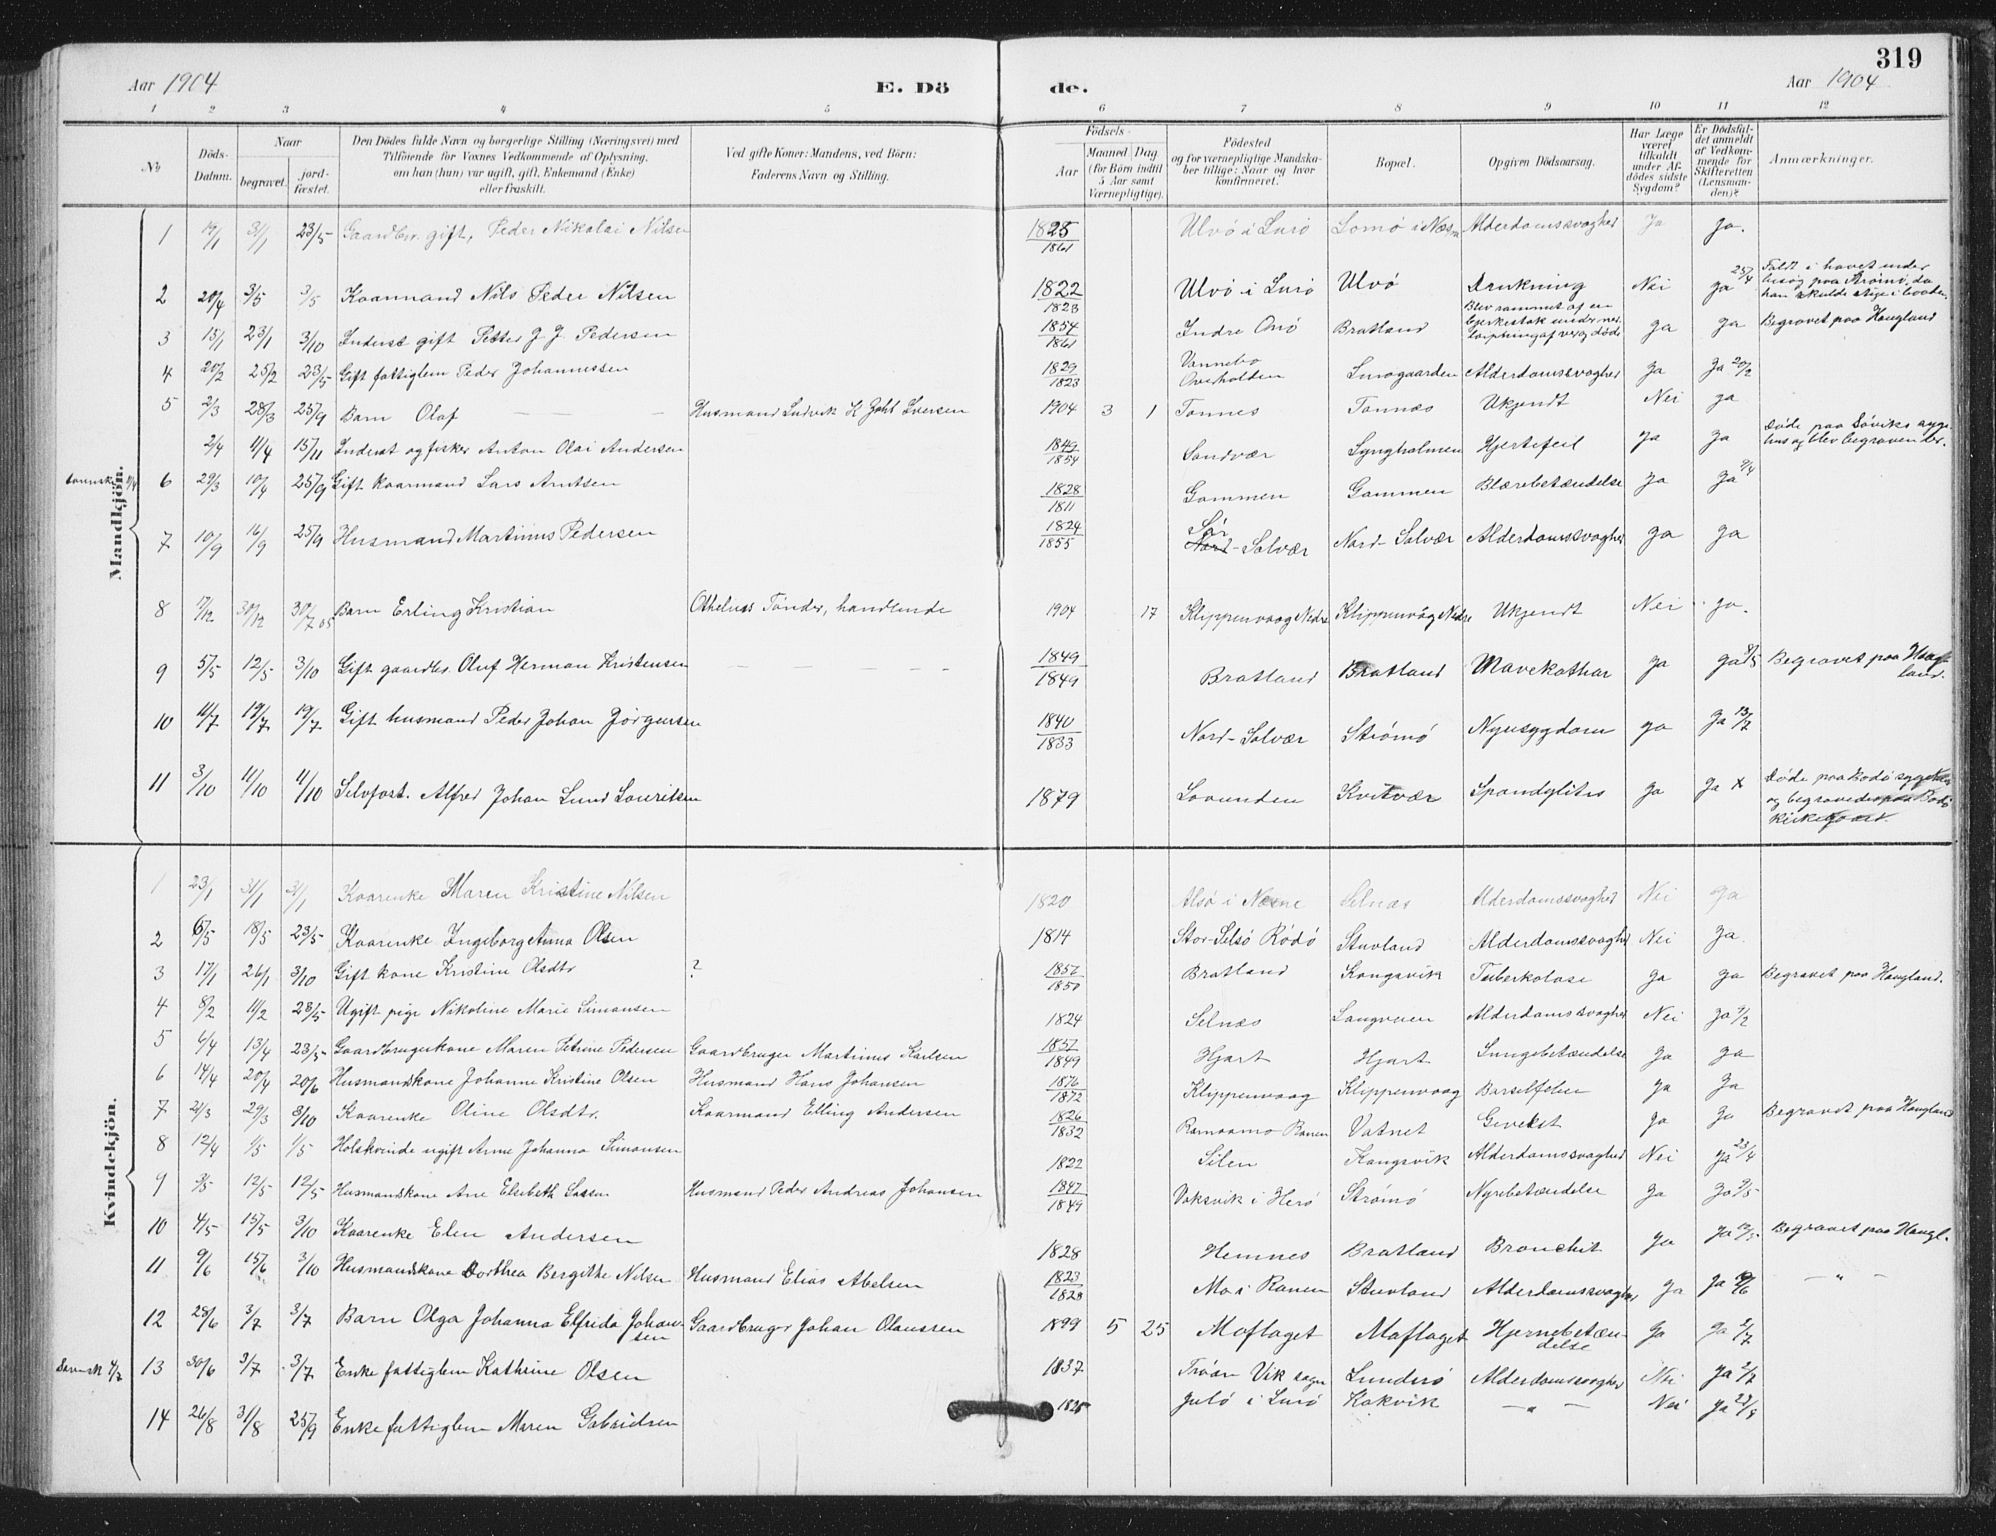 319
Aar 1904 E. Dö de. Aar 1904
1 2 3 4 5 6 7 8 9 10 11 12
No. Döds-Datum. Naar begravet. jordfæstet. Den Dödes fulde Navn og borgerlige Stilling (Næringsvei) med Tilföiende for Voxnes Vedkommende af Oplysning, om han (hun) var ugift, gift, Enkemand (Enke) eller fraskilt. Ved gifte Koner: Mandens, ved Börn: Faderens Navn og Stilling. Födsels- Aar Maaned Dag (for Börn indtil 5 Aar samt Værnepligtige). Födested og for værnepligtige Mandskaber tillige: Naar og hvor konfirmeret. Bopæl. Opgiven Dödsaarsag. Har Læge været tilkaldt under Afdödes sidste Sygdom? Er Dödsfaldet anmeldt af Vedkommende for Skifteretten (Lensmanden)? Anmærkninger.
Mandkjön.
1 19/1 31/1 23/5 Gaardbr. gift, Peder Nikolai Nilsen 1825 1861 Ulvö i Lurö Lomö i Næsne Alderdomssvaghed Ja Ja.
2 20/4 3/5 3/5 Kaarmand Nils Peder Nilsen 1822 1823 Ulvö i Lurö Ulvö Drukning Nei Ja 25/4 Faldt i havet under besög paa Strömö, da han skulde stige i baaden.
3 15/1 23/1 3/10 Inderst gift Petter J. J. Pedersen 1854 1861 Indre Onö Bratland Blev rammet af en under döde Ja Ja Begravet paa Haugland
4 20/2 25/2 23/5 Gift fattiglem Peder Johannessen 1829 1823 Vannebo Overhalden Lurogaarden Alderdomssvaghed Ja Ja 20/2
5 2/3 28/3 25/9 Barn Olaf — — Husmand Ludvik K Johl Iversen 1904 3 1 Tonnes Tonnæs Ukjendt Nei Ja
2/4 11/4 15/11 Inderst og fisker Anton Olai Andersen 1849 1854 Sandvær Lyngholmen Hjertefeil Ja Ja Döde paa Söviks syge-hus og blev begraven der.
6 29/3 10/4 25/9 Gift kaarmand Lars Arntsen 1828 1811 Gammen Gammen Blærebetændelse Ja Ja 9/4
7 10/9 16/9 25/9 Husmand Martinus Pedersen 1824 1855 Sör Nord-Solvær Nord-Solvær Alderdomssvaghed Ja Ja
8 17/12 30/12 30/7 05 Barn Erling Kristian Othelius Tönder, handlende 1904 17 Klippenvaag Nedre Klippenvåg Nedre Ukjendt Nei Ja.
9 5/5 12/5 3/10 Gift gaardbr. Oluf Herman Kristensen — — — — 1849 1849 Bratland Bratland Mavekathar Ja Ja 9/5 Begravet paa Haugland.
10 11/7 19/7 19/7 Gift husmand Peder Johan Jörgensen 1840 1833 Nord-Solvær Strömö Nyresygdom Ja Ja 13/7
11 3/10 11/10 11/10 Selvfost. Alfred Johan Lund Lauritsen 1879 Lovunden Kvitvær Spondylitis Ja Ja x Döde paa Bodö sygehus og begravedes paa Bodö kirkegaard.
Kvindekjön.
1 23/1 31/1 31/1 Kaarenke Maren Kristine Nilsen 1820 Alsö i Næsne Selnæs Alderdomssvaghed Nei Ja
2 6/5 18/5 23/5 Kaarenke Ingeborg Anna Olsen 1814 Stor-Selsö Rödö Stuvland Alderdomssvaghed Nei Ja.
3 17/1 26/1 3/10 Gift kone Kristine Olsdtr ? 1857 1850 Bratland Kongsvik Tuberkolose Ja Ja Begravet paa Haugland.
4 8/2 11/2 23/5 Ugift pige Nikoline Marie Simonsen 1824 Selnæs Langveien Alderdomssvaghed Nei Ja 9/2
5 6/4 13/4 23/5 Gaardbrugerkone Maren Petrine Pedersen Gaardbruger Martinus Karlsen 1857 1849 Hjart Hjart Lungebetændelse Ja Ja
6 14/4 20/4 20/6 Husmandskone Johanne Kristine Olsen Husmand Hans Johansen 1876 1872 Klippenvaag Klippenvaag Barselfeber Ja Ja
7 21/3 29/3 3/10 Kaarenke Oline Olsdtr. Kaarmand Elling Andersen 1826 1832 Ranen Vatnet Ja Ja Begravet paa Haugland
8 12/4 1/5 1/5 Holskvinde ugift Anne Johanna Simonsen 1822 Silen Kongsvik Alderdomssvaghed Nei Ja 23/4
9 3/5 12/5 12/5 Husmandskone Ane Elisbeth Lassen Husmand Peder Andreas Johansen 1847 1849 Voksvik i Herö Strömö Nyrebetændelse Ja Ja 9/5
10 4/5 15/5 3/10 Kaarenke Elen Andersen 1828 Hemnes Bratland Bronchit Ja Ja Begravet paa Haugl.
11 9/6 15/6 3/10 Husmandskone Dorthea Bergitte Nilsen Husmand Elias Abelsen 1823 1828 Mo i Ranen Stuvland Alderdomssvaghed Ja Ja — „ —
12 28/6 3/7 3/7 Barn Olga Johanna Elfrida Johansen Gaardbruger Johan Olaussen 1899 5 25 Moflaget Moflaget Hjernebetændelse Ja Ja 2/7
13 30/6 3/7 3/7 Enke fattiglem Kathrine Olsen 1837 Vik sogn Lunderö Alderdomssvaghed Nei Ja 2/7
14 26/8 31/8 25/9 Enke fattiglem Maren Gabrielsen 1825 i Lurö Kokvik — „ — Nei Ja